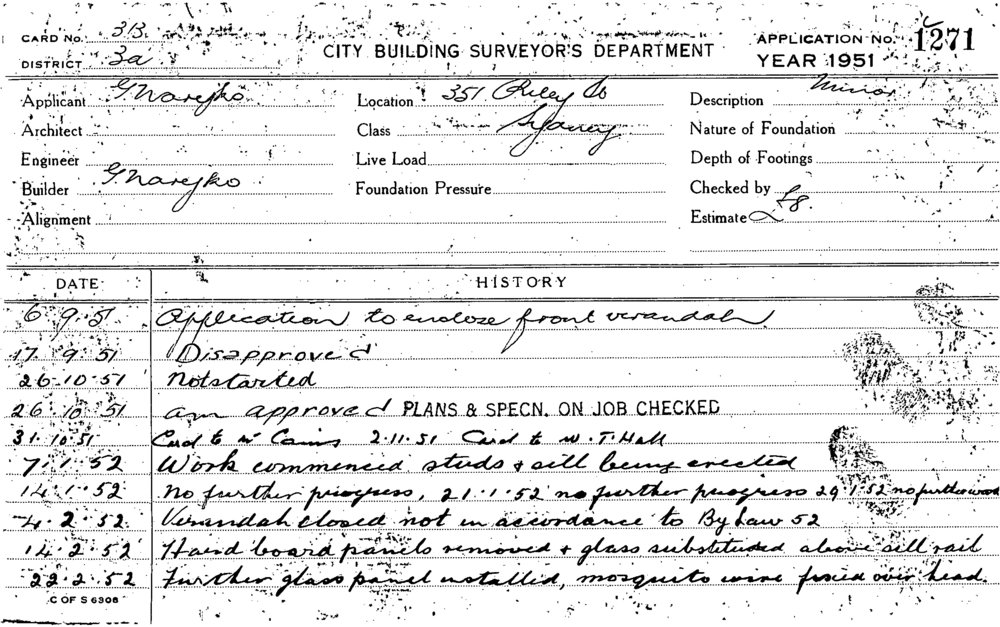 CARD No. 313
DISTRICT 3a
CITY BUILDING SURVEYOR'S DEPARTMENT
APPLICATION No. 1271
YEAR 1951
Applicant G Narejko
Location 351 Riley St
Sydney
Description Minor
Architect
Class
Nature of Foundation
Engineer
Live Load
Depth of Footings
Builder G Narejko
Foundation Pressure
Checked by
Alignment
Estimate £8.
DATE HISTORY
6 9.51 Application to enclose front verandah
17. 9. 51 Disapproved
26.10.51 Not started
26 10. 51 am approved PLANS & SPECN. ON JOB CHECKED
31.10.51 Card to Mr Cains 2.11.51 Card to W. T. Hall
7.1.52 Work commenced studs & sill being erected
14.1.52 No further progress, 21.1.52 no further progress 29.1.52 no further work
4.2.52. Verandah closed not in accordance to By Law 52
14.2.52 Hard board panels removed & glass substituded above sill rail
22.2.52 Further glass panel installed, mosquito wire fixed over head.
C OF S 6308